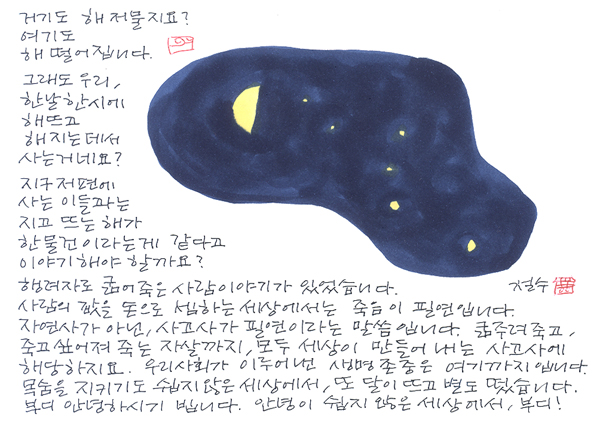 거기도 해 저물지요?
여기도
해 떨어집니다.
그래도 우리,
한날 한시에
해뜨고
해지는데서
사는거네요?
지구 저편에
사는 이들과는
지고 뜨는 해가
한물건이라는게 같다고
이야기해야 할까요?
행려자로 굶어죽은 사람이야기가 있었습니다.
사람의 값을 돈으로 셈하는 세상에서는 죽음이 필연입니다.
자연사가 아닌, 사고사가 필연이라는 말씀입니다. 굶주려죽고,
죽고싶어져 죽는 자살까지, 모두 세상이 만들어 내는 사고사에
해당하지요. 우리사회가 이루어낸 생명존중은 여기까지입니다.
목숨을 지키기도 쉽지않은 세상에서, 또 달이 뜨고 별도 떴습니다.
부디 안녕하시기 빕니다. 안녕이 쉽지 않은 세상에서, 부디!
철수